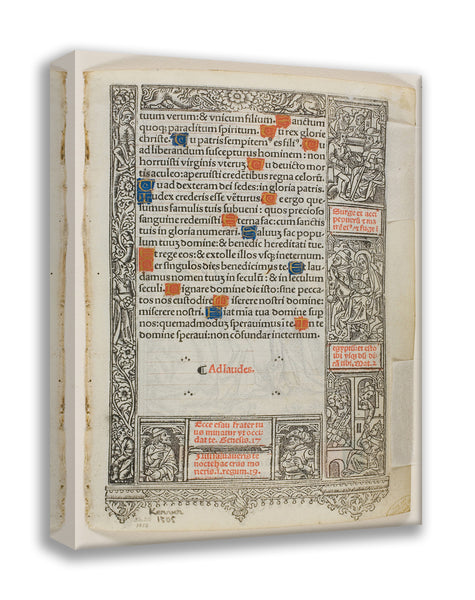 tuum verum: & vnicum filium. Sanctum
quoq; paraclitum spiritum. Tu rex glorie
christe. Tu patris sempitern⁹ es fili⁹. Tu
ad liberandum suscepturus hominem: non
horruisti virginis vterum. Tu deuicto mor
tis aculeo: aperuisti credētibus regna celorū.
Tu ad dexteram dei sedes: in gloria patris.
Iudex crederis esse vēturus. Te ergo que
sumus famulis tuis subueni: quos precioso
sanguine redemisti. Eterna fac: cum sanctis
tuis in gloria numerari. Saluuȝ fac popu
lum tuuȝ domine: & benedic hereditati tue.
Et rege eos: & extolle illos vsq; ineternum.
Per singulos dies benedicimus te. Et lau
damus nomen tuuȝ in seculū: & in seculum
seculi. Dignare domine die isto: sine pecca
to nos custodire. Miserere nostri domine:
miserere nostri. Fiat mia tua domine sup
nos: quemadmoduȝ sperauimus in te. In te
domine speraui: non cōfundar ineternum.
Ad laudes.
Surge et acci
pe
egypti
Mat. 2
Ecce esau frater tu
us minatur vt occi
dat te. Genesis. 27
.i. regum. 19.
Kerver
1505